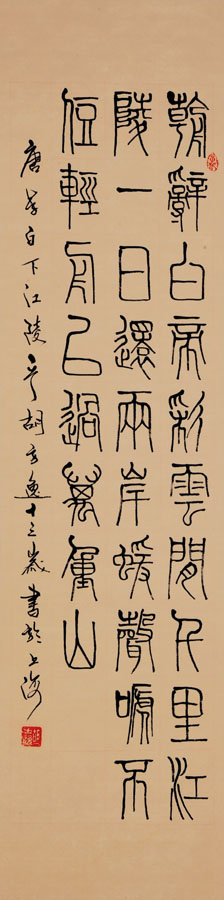 朝辭白帝彩雲間千里江
陵一日還兩岸蝯聲嗁不
住輕舟已過萬重山
唐李白下江陵胡逸十三歲書於上海